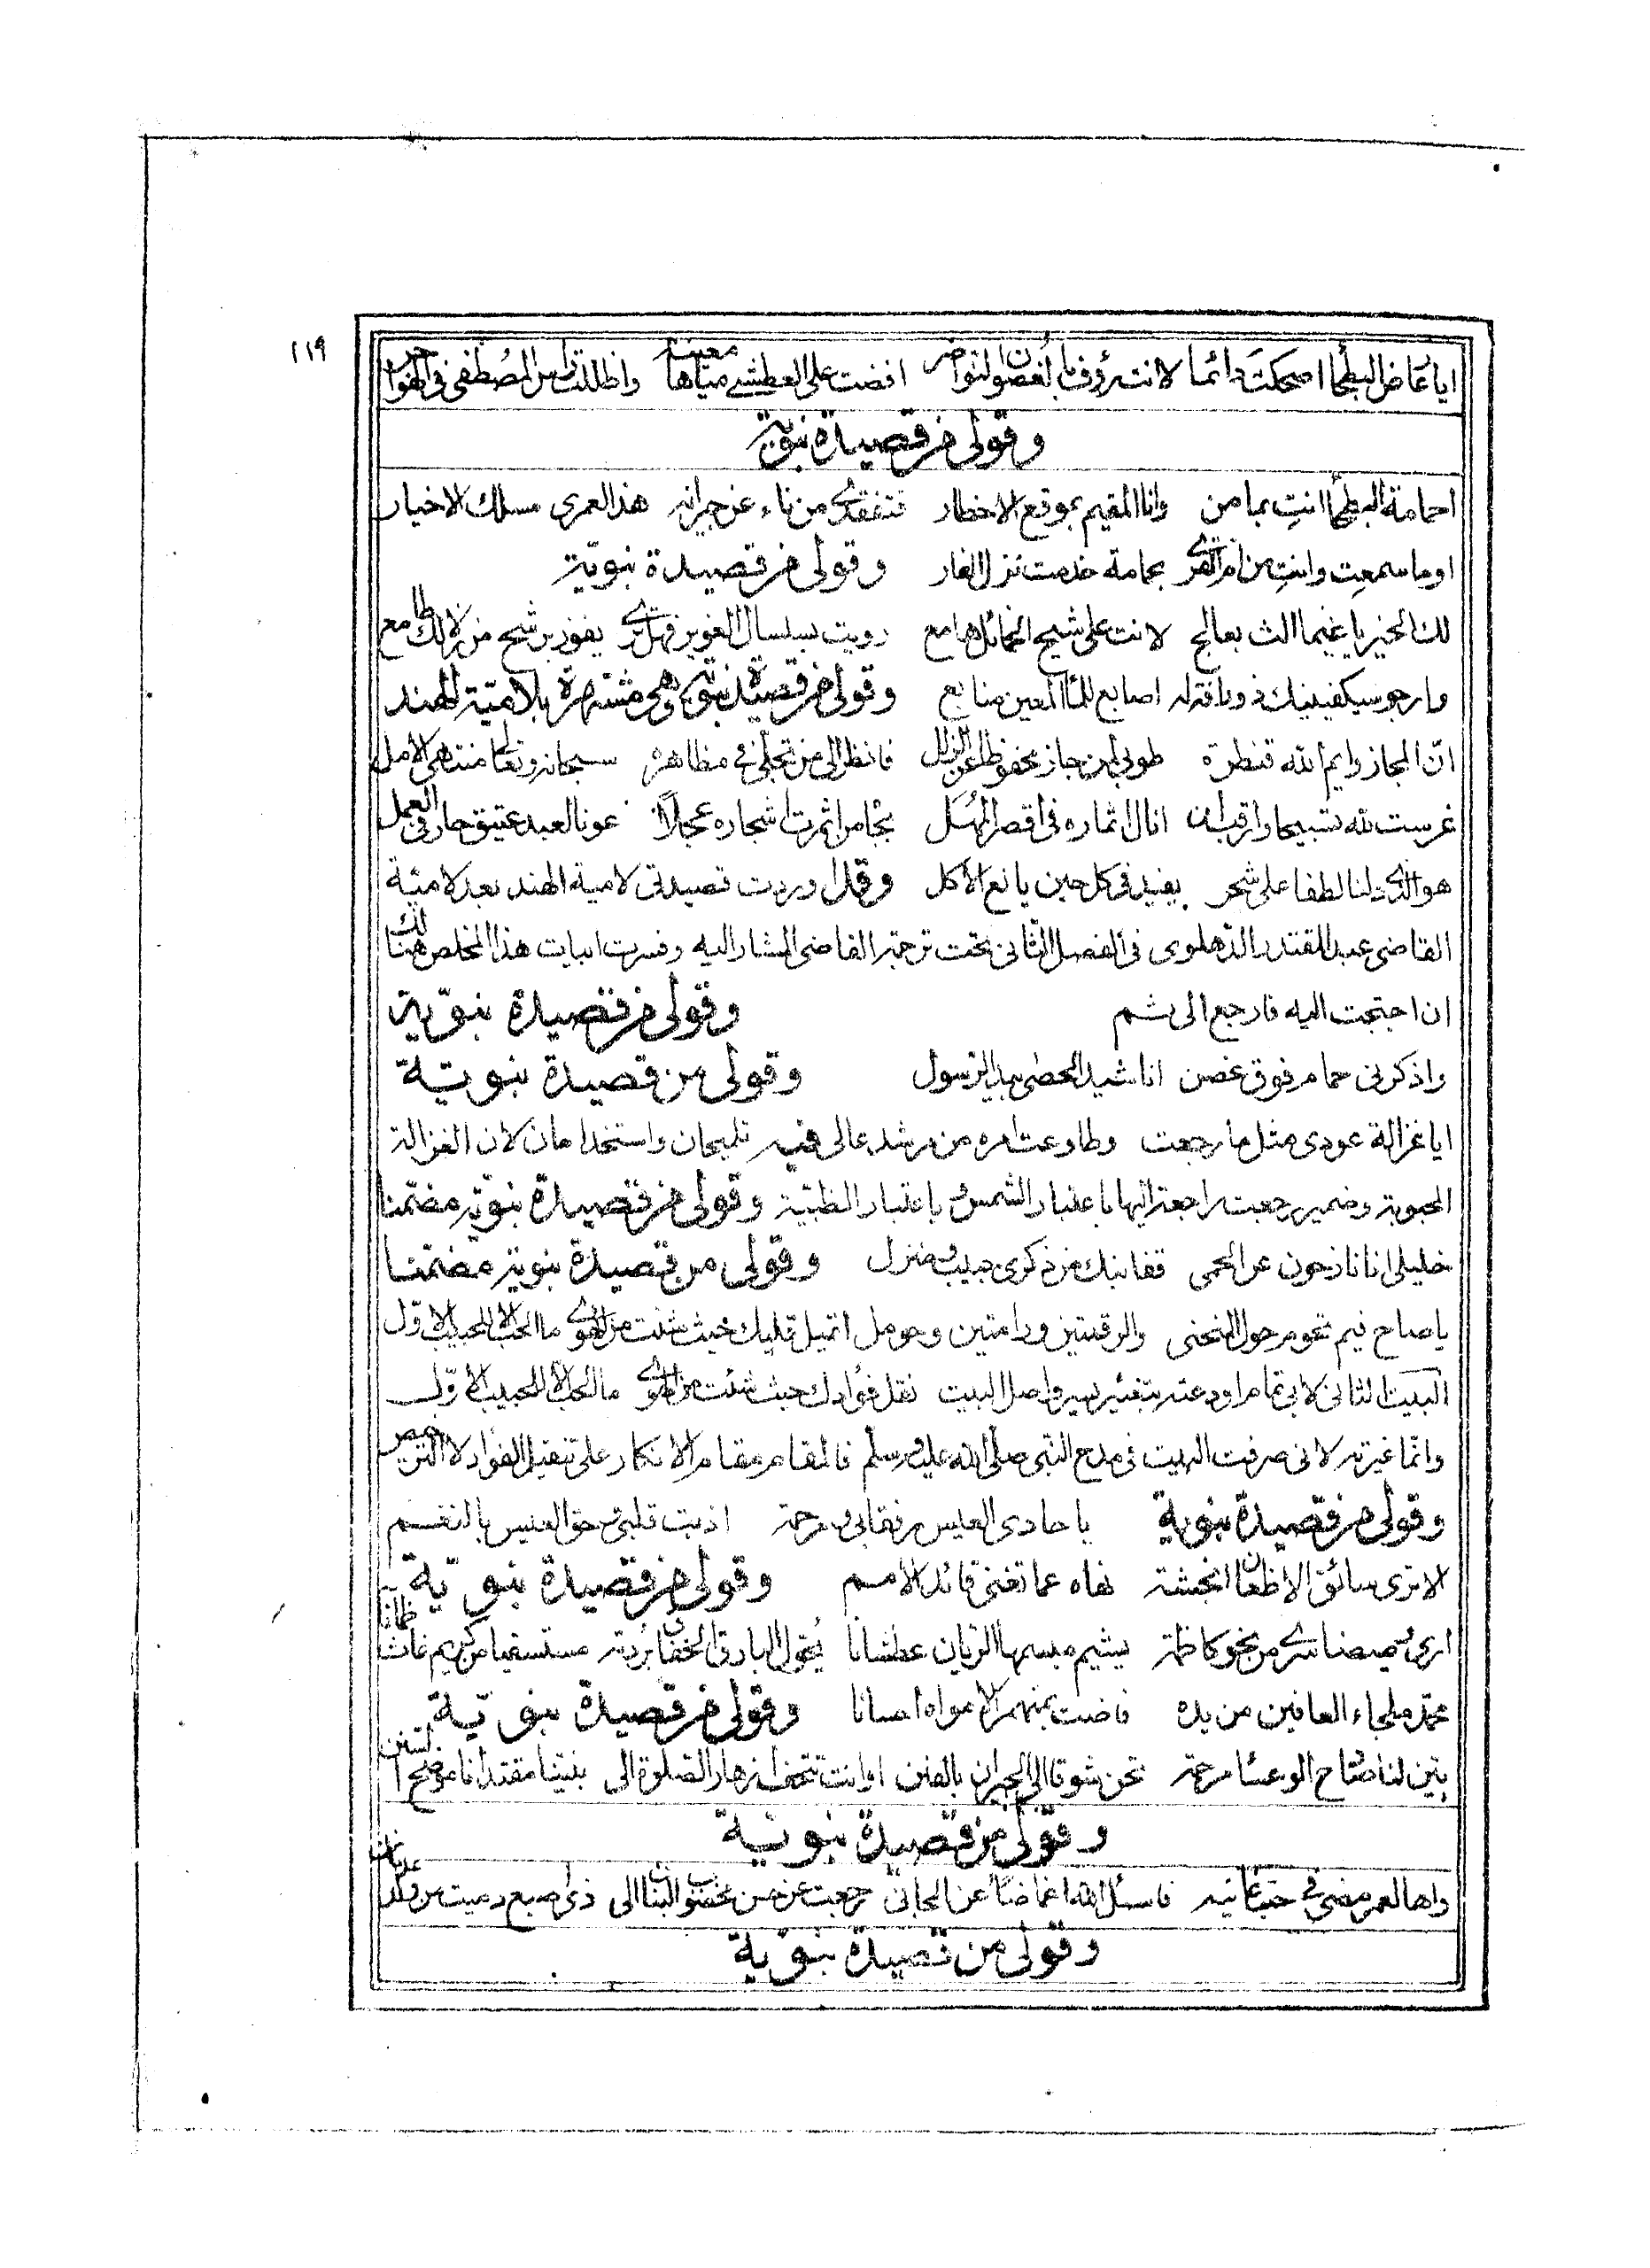 ١١٩
ايا عارض البطحا اضحكت دائما لانت رؤف بالغصون النواضر افضت على العطشى مياها معينة واظللت راس المصطفى فى الهواجر
وقولى من قصيدة نبوية
احمامة البطحا انت بمامن وانا المقيم بموقع الاخطار فتفقدى من ناء عن جيرانه هذا لعمرى مسلك الاخيار
اوما سمعت وانت من ام القرى بحمامة خدمت نزل الغار وقولى من قصيدة نبوية
لك الخير يا غيما الث بعالج لانت على شيح الخمائل هامع رويت بسلسال الغوير فهل ترى يفوز برشح من زلالك طامع
وارجو سيكفينيك ذو رافة له اصابع للمآء المعين منابع وقولى من قصيدة نبوية وهى مشتهرة بلامية الهند
ان المجاز وايم الله قنطرة طوبى لمن جاز محفوظا عن الزلل فانظر الى من تجلى فى مظاهره سبحانه وتعا منتهى الامل
غرست لله تسبيحا وارقب ان انال اثماره فى اقصر المهل بجاه من اثمرت اشجاره عجلا عونا لعبد عتيق حار فى العمل
هو الذى دلنا لطفا على شجر يفيد فى كل حين يانع الاكل وقد اوردت قصيدتى لامية الهند بعد لامية
القاضى عبد المقتدر الدهلوى فى الفصل الثانى تحت ترجمة القاضى المشار اليه وفسرت ابيات هذا المخلص هنالك
ان احتجت اليه فارجع الى ثم وقولى من قصيدة نبوية
واذكرنى حمام فوق غصن اناشيد الحصى بيد الرسول وقولى من قصيدة نبوية
ايا غزالة عودى مثل ما رجعت وطاوعت امره من مرشد عالى فيه تلميحان واستخدامان لان الغزالة
المحبوبة وضمير رجعت راجعة اليها باعتبار الشمس وباعتبار الظبية وقولى من قصيدة نبوية مضمنا
خليلى انا نازحون عن الحمى قفا نبك من ذكرى حبيب ومنزل وقولى من قصيدة نبوية مضمنا
يا صاح فيم تحوم حول المنحنى والرقمتين ورامتين وحومل اتميل قلبك حيث شئت من الهوى ما الحب الا للحبيب الاول
البيت الثانى لابى تمام اودعته بتغيير يسير واصل البيت نقل فؤادك حيث شئت من الهوى ما الحب الا للحبيب الاول
وانما غيرته لانى صرفت البيت فى مدح النبى صلى الله عليه وسلم فالمقام مقام الانكار على تنقيل الفواد لا التربص
وقولى من قصيدة نبوية يا حادى العيس رفقا بى ومرحمة اذبت قلبى وحق العيس بالنغم
الا ترى سائق الاظعان انجشة نهاه عما تغنى قائد الامم وقولى من قصيدة نبوية
ارى وميضا سرى من نحو كاظمة يشيم مبسمها الريان عطشانا يحول البارق الخفاق بردته مستسقيا من كريم غاث ظمانا
محمد ملجاء العافين من يده فاضت بمنهمر الامواه احسانا وقولى من قصيدة نبوية
بين لنا صاح الوعسا مرحمة نحن شوقا الى الجيران بالفنن اوانت تتحف ازهار الصلوة الى نبينا مقتدانا موضح السنن
وقولى من قصيدة نبوية
واها لعمر مضى فى حب غانيه فاسئل الله اغماضا عن الجانى رجعت عن حسن مخضوب البنان الى ذى اصبع دميت من ولد عدنان
وقولى من قصيدة نبوية